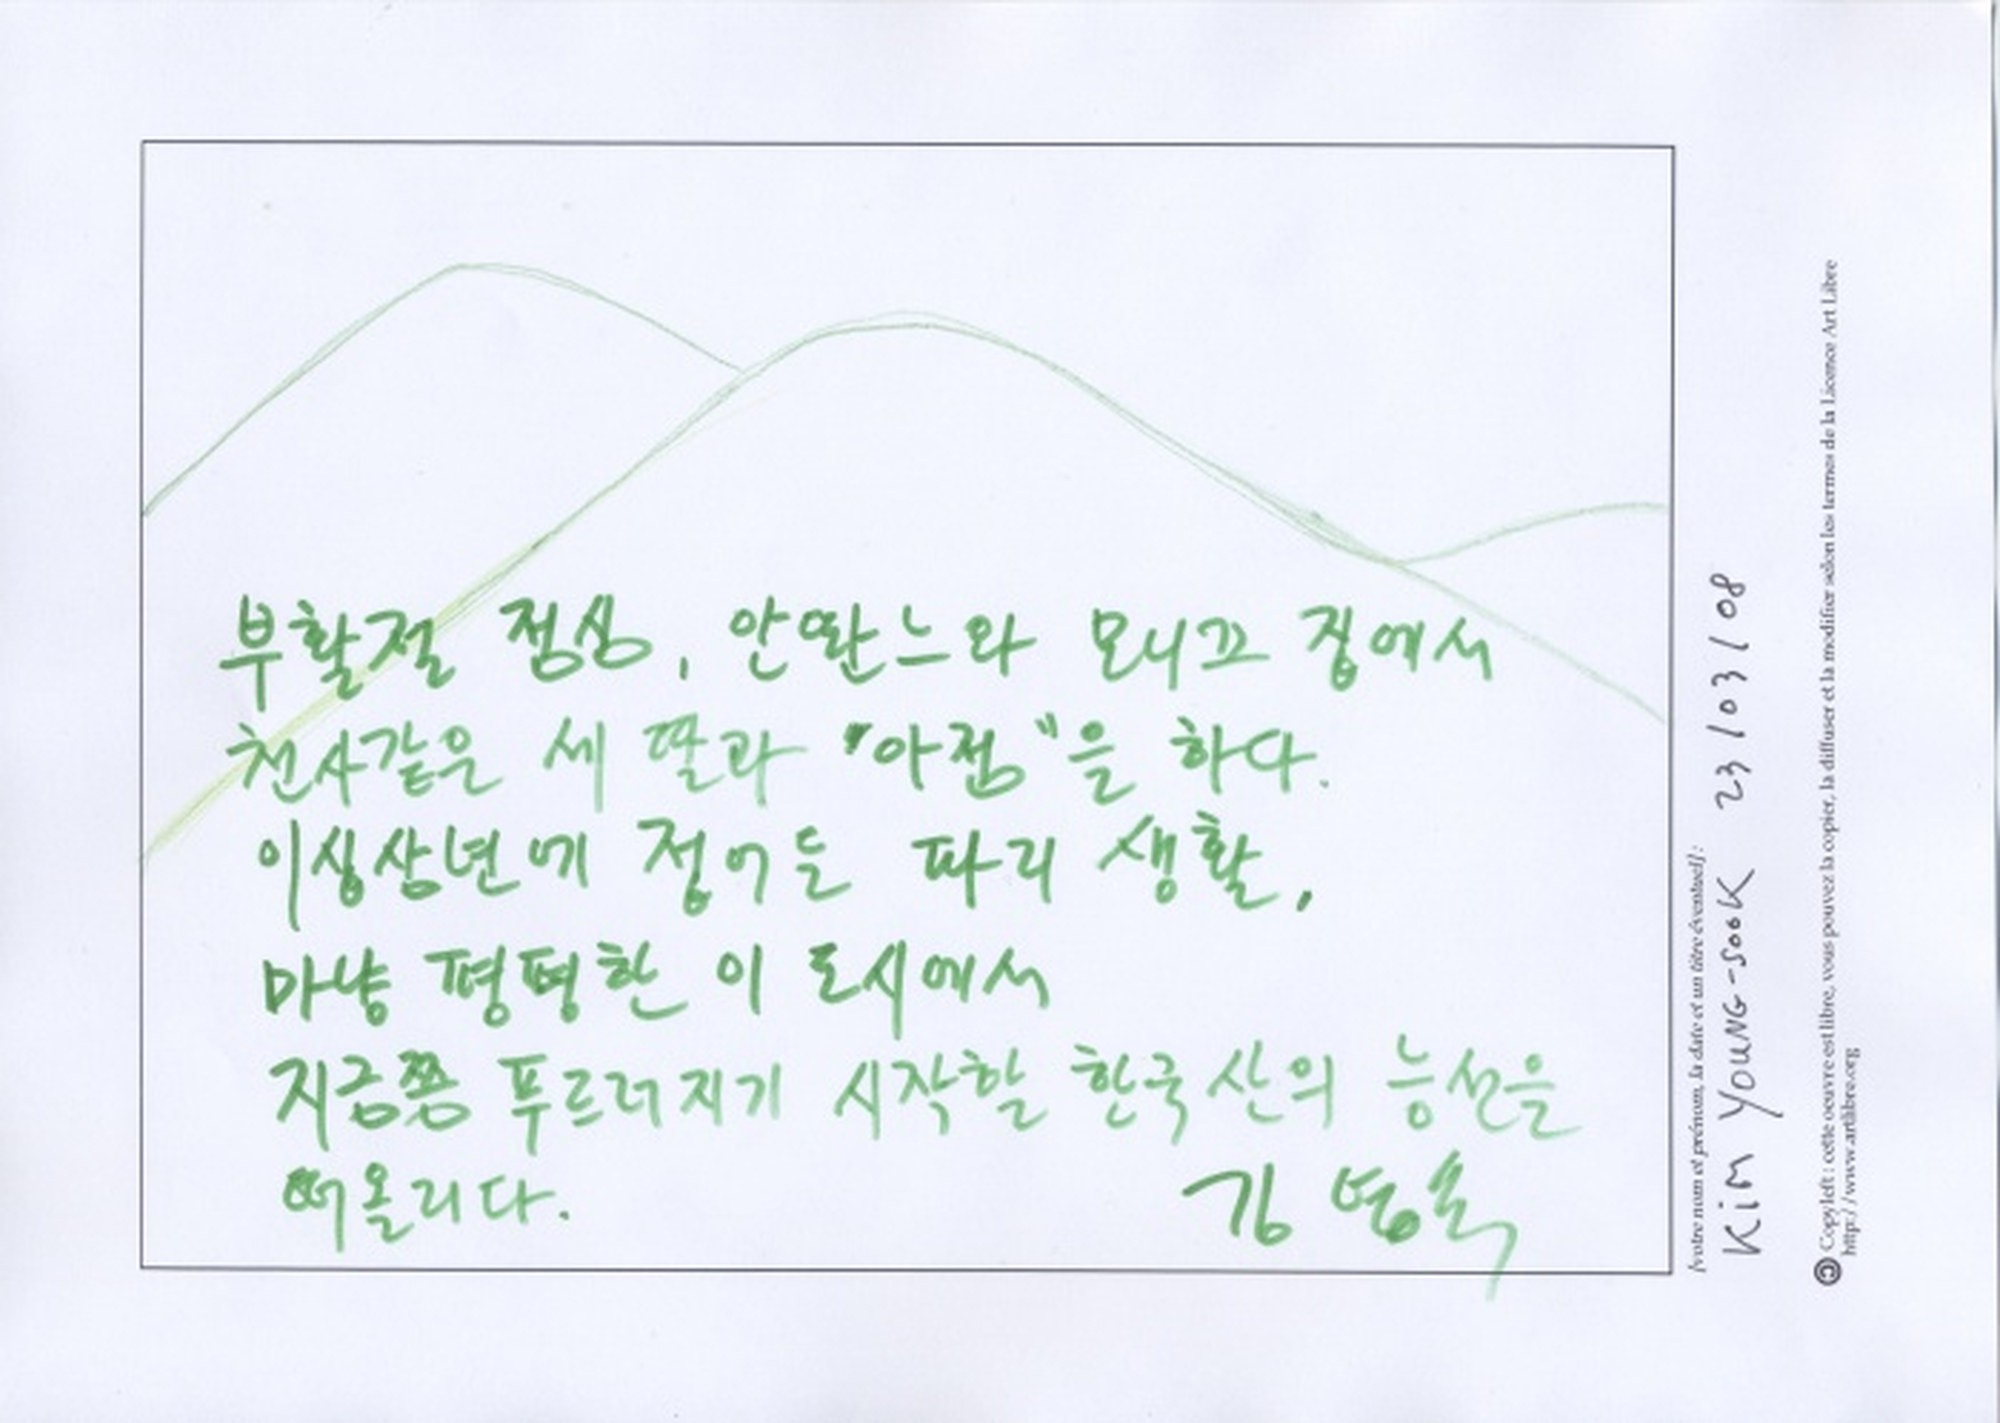 부활절 점심, 안딴느와 모니끄 집에서
천사같은 세 딸과 "아점"을 하다.
이십삼년에 접어든 파리 생활,
마냥 평평한 이 도시에서
지금쯤 푸르러지기 시작할 한국 산의 능선을
떠올리다.
김 영숙
[votre nom et prénom, la date et un titre éventuel] :
KiM YOUNG-SOOK 23/03/08
Copyleft : cette oeuvre est libre, vous pouvez la copier, la diffuser et la modifier selon les termes de la Licence Art Libre
http://www.artlibre.org